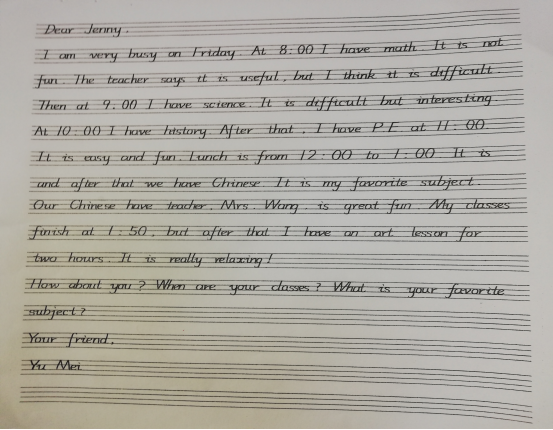 Dear Jenny,
I am very busy on Friday. At 8:00 I have math. It is not
fun. The teacher says it is useful, but I think it is difficult.
Then at 9.00 I have science. It is difficult but interesting.
At 10:00 I have history. After that, I have P.E. at 11:00.
It is easy and fun. Lunch is from 12:00 to 1:00 It is
and after that we have Chinese. It is my favorite subject.
Our Chinese have teacher, Mrs. Wang, is great fun. My classes
finish at 1:50, but after that I have an art lesson for
two hours. It is really relaxing!
How about you? When are your classes? What is your favorite
subject?
Your friend,
Yu Mei